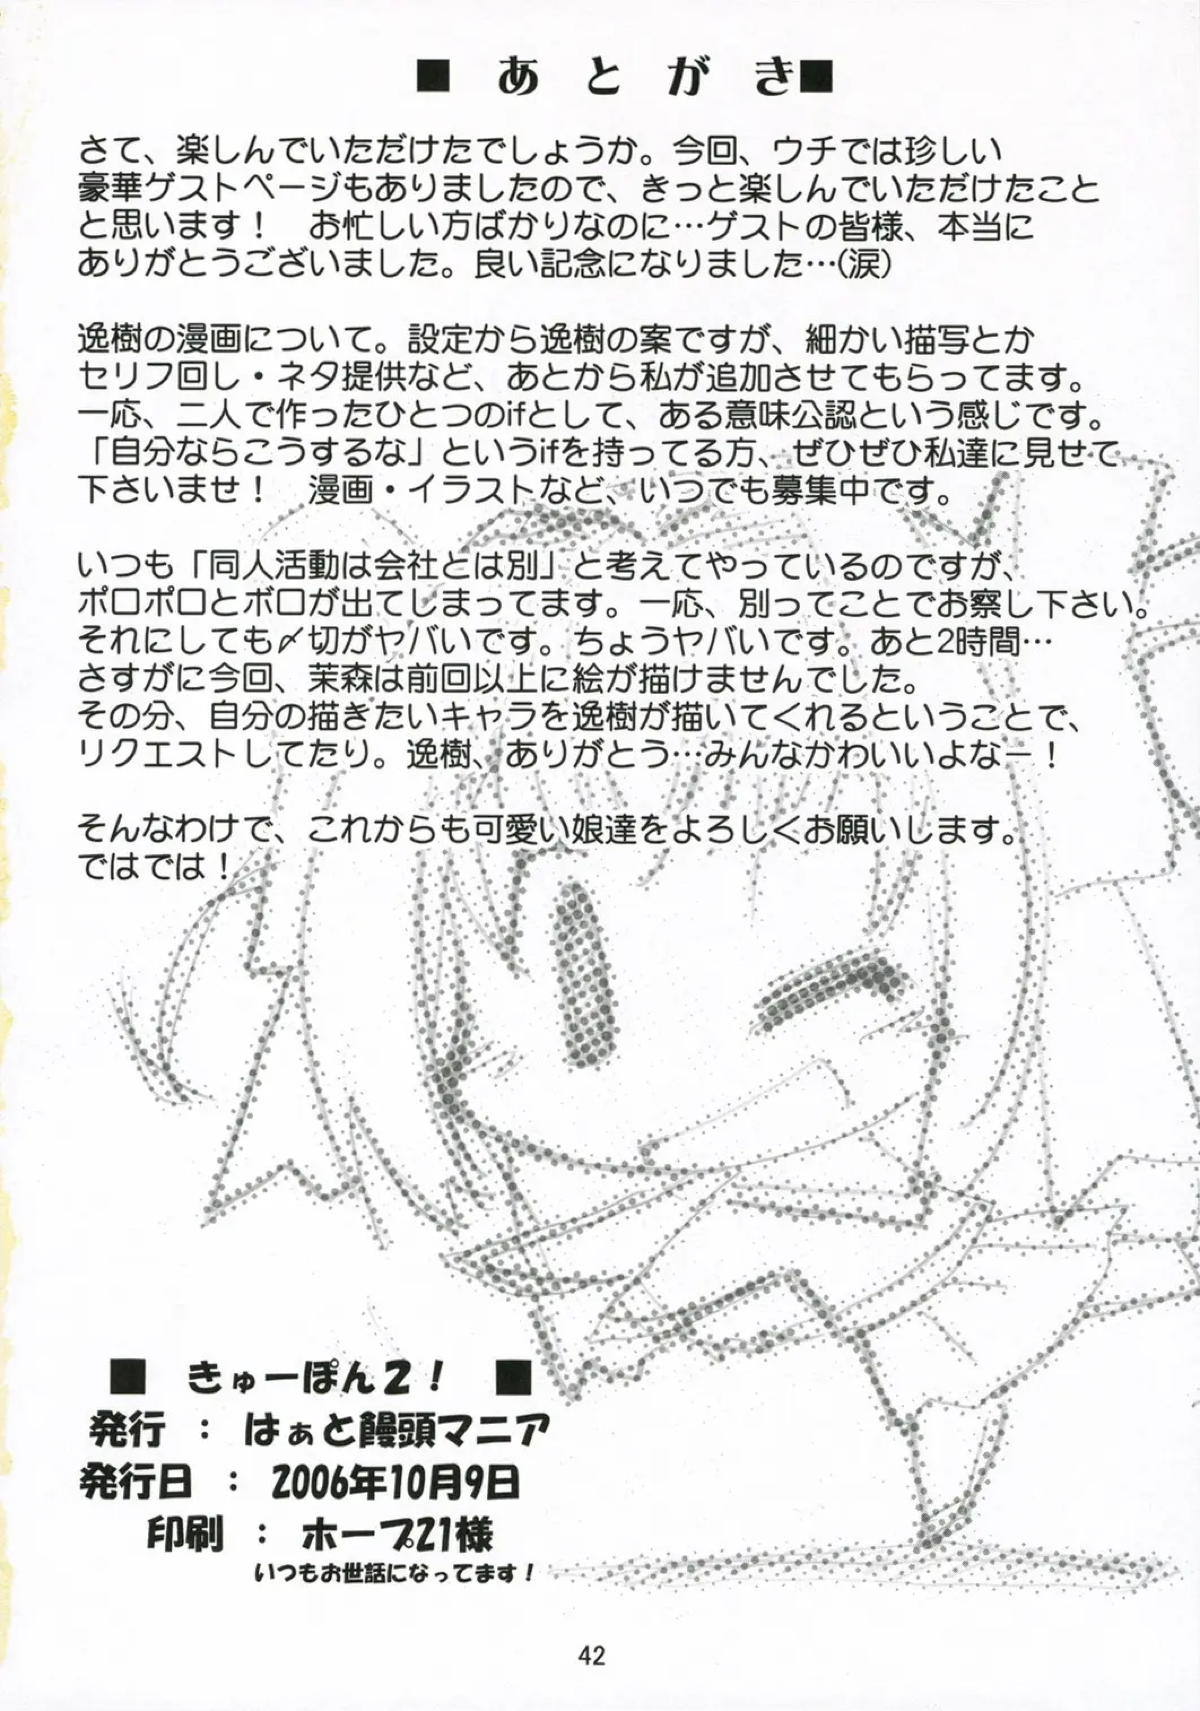 ■ あとがき■
さて、楽しんでいただけたでしょうか。今回、ウチでは珍しい
豪華ゲストページもありましたので、きっと楽しんでいただけたこと
と思います！　お忙しい方ばかりなのに…ゲストの皆様、本当に
ありがとうございました。良い記念になりました…(涙)
逸樹の漫画について。設定から逸樹の案ですが、細かい描写とか
セリフ回し・ネタ提供など、あとから私が追加させてもらってます。
一応、二人で作ったひとつのifとして、ある意味公認という感じです。
「自分ならこうするな」というifを持ってる方、ぜひぜひ私達に見せて
下さいませ！　漫画・イラストなど、いつでも募集中です。
いつも「同人活動は会社とは別」と考えてやっているのですが、
ポロポロとボロが出てしまってます。一応、別ってことでお察し下さい。
それにしても〆切がヤバいです。ちょうヤバいです。あと2時間…
さすがに今回、茉森は前回以上に絵が描けませんでした。
その分、自分の描きたいキャラを逸樹が描いてくれるということで、
リクエストしてたり。逸樹、ありがとう…みんなかわいいよなー！
そんなわけで、これからも可愛い娘達をよろしくお願いします。
ではでは！
■ きゅーぽん2！ ■
発行 ： はぁと饅頭マニア
発行日 ： 2006年10月9日
印刷 ： ホープ21様
いつもお世話になってます！
42